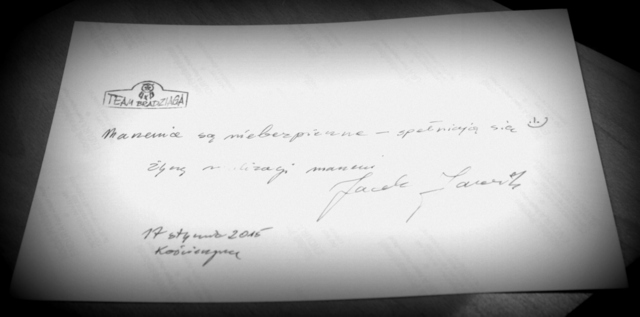 TEAM BRADZIAGA
Marzenia są niebezpieczne - spełniają się
Życzę realizacji marzeń
Jacek
17 stycznia 2015
Kościerzyna